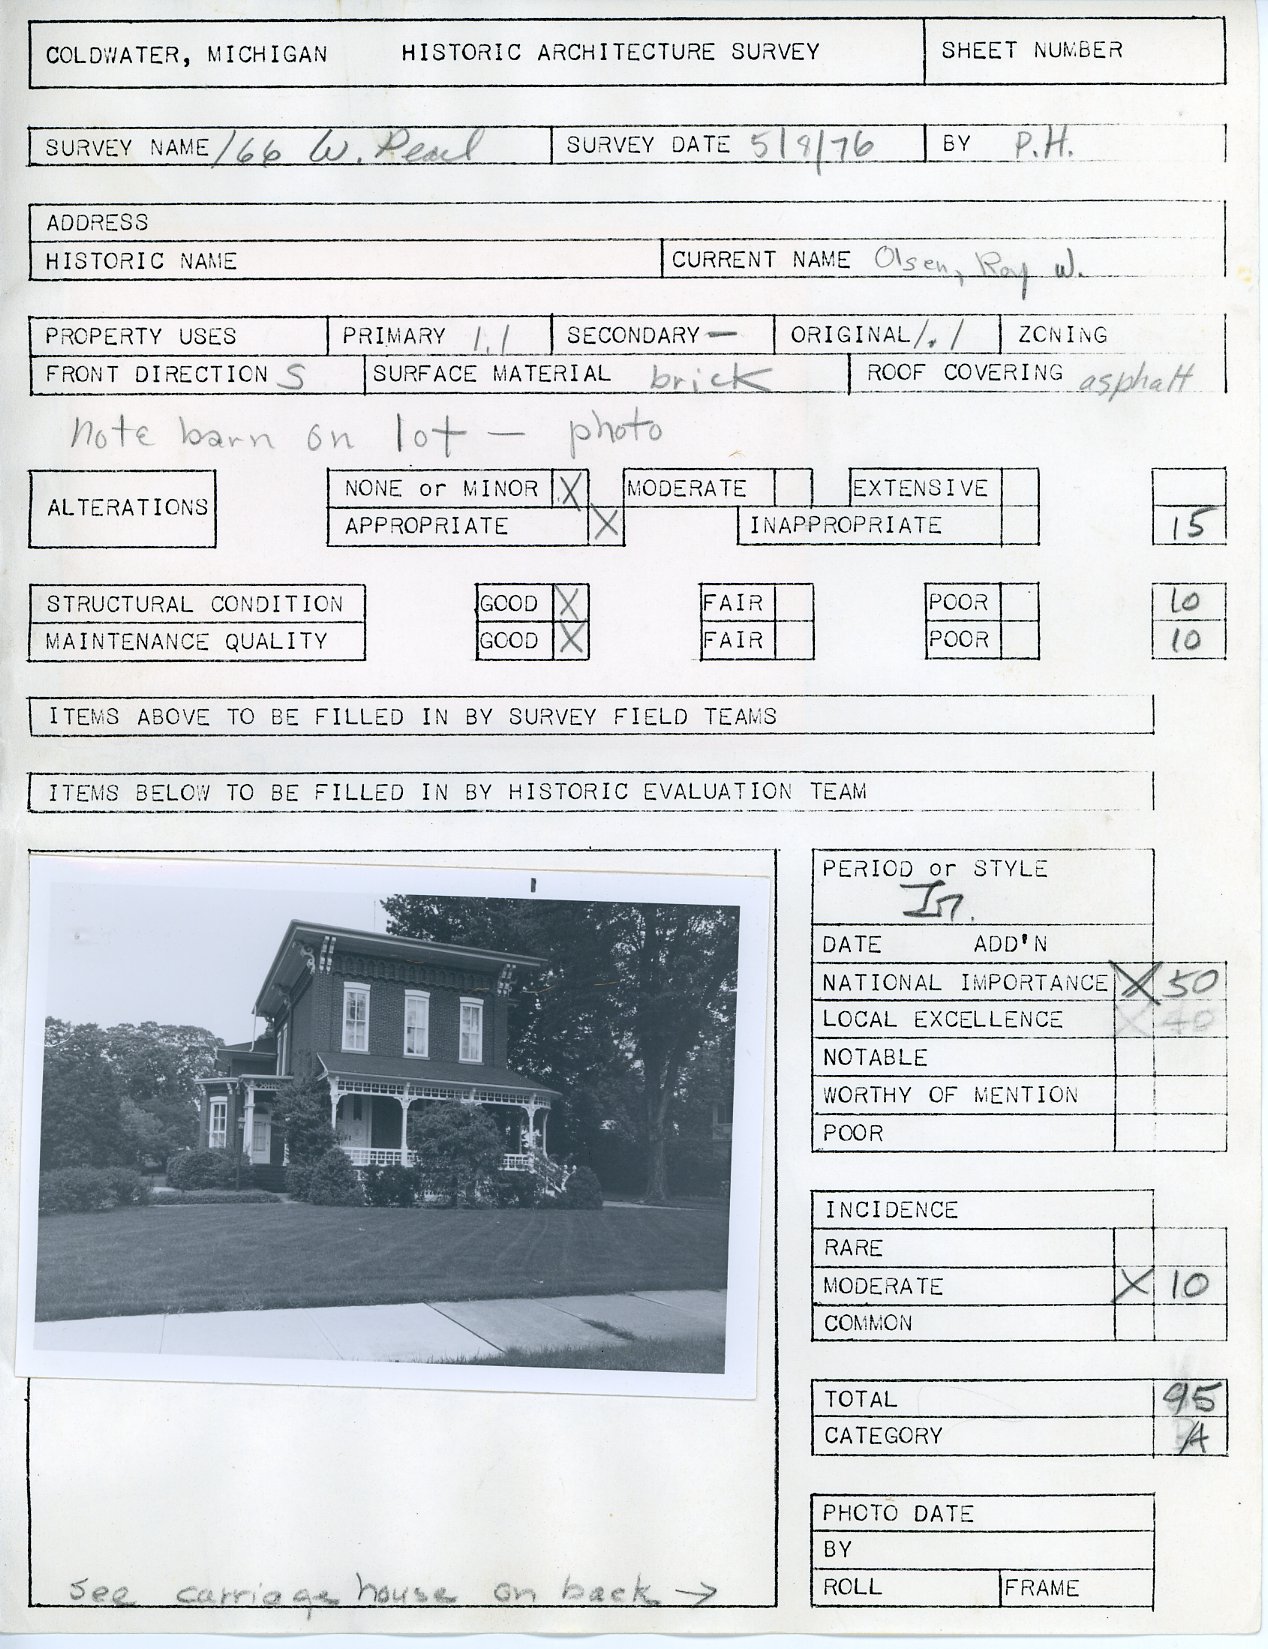 COLDWATER, MICHIGAN HISTORIC ARCHITECTURE SURVEY SHEET NUMBER
SURVEY NAME 166 W. Pearl SURVEY DATE 5/8/76 BY P.H.
ADDRESS
HISTORIC NAME CURRENT NAME Olsen, Ray W.
PROPERTY USES PRIMARY 1.1 SECONDARY — ORIGINAL 1.1 ZONING
FRONT DIRECTION S SURFACE MATERIAL brick ROOF COVERING asphalt
Note barn on lot — photo
ALTERATIONS NONE or MINOR X MODERATE EXTENSIVE
APPROPRIATE X INAPPROPRIATE 15
STRUCTURAL CONDITION GOOD X FAIR POOR 10
MAINTENANCE QUALITY GOOD X FAIR POOR 10
ITEMS ABOVE TO BE FILLED IN BY SURVEY FIELD TEAMS
ITEMS BELOW TO BE FILLED IN BY HISTORIC EVALUATION TEAM
PERIOD or STYLE
DATE ADD'N
NATIONAL IMPORTANCE X 50
LOCAL EXCELLENCE X 40
NOTABLE
WORTHY OF MENTION
POOR
INCIDENCE
RARE
MODERATE X 10
COMMON
TOTAL 95
CATEGORY A
PHOTO DATE
BY
ROLL FRAME
See carriage house on back →